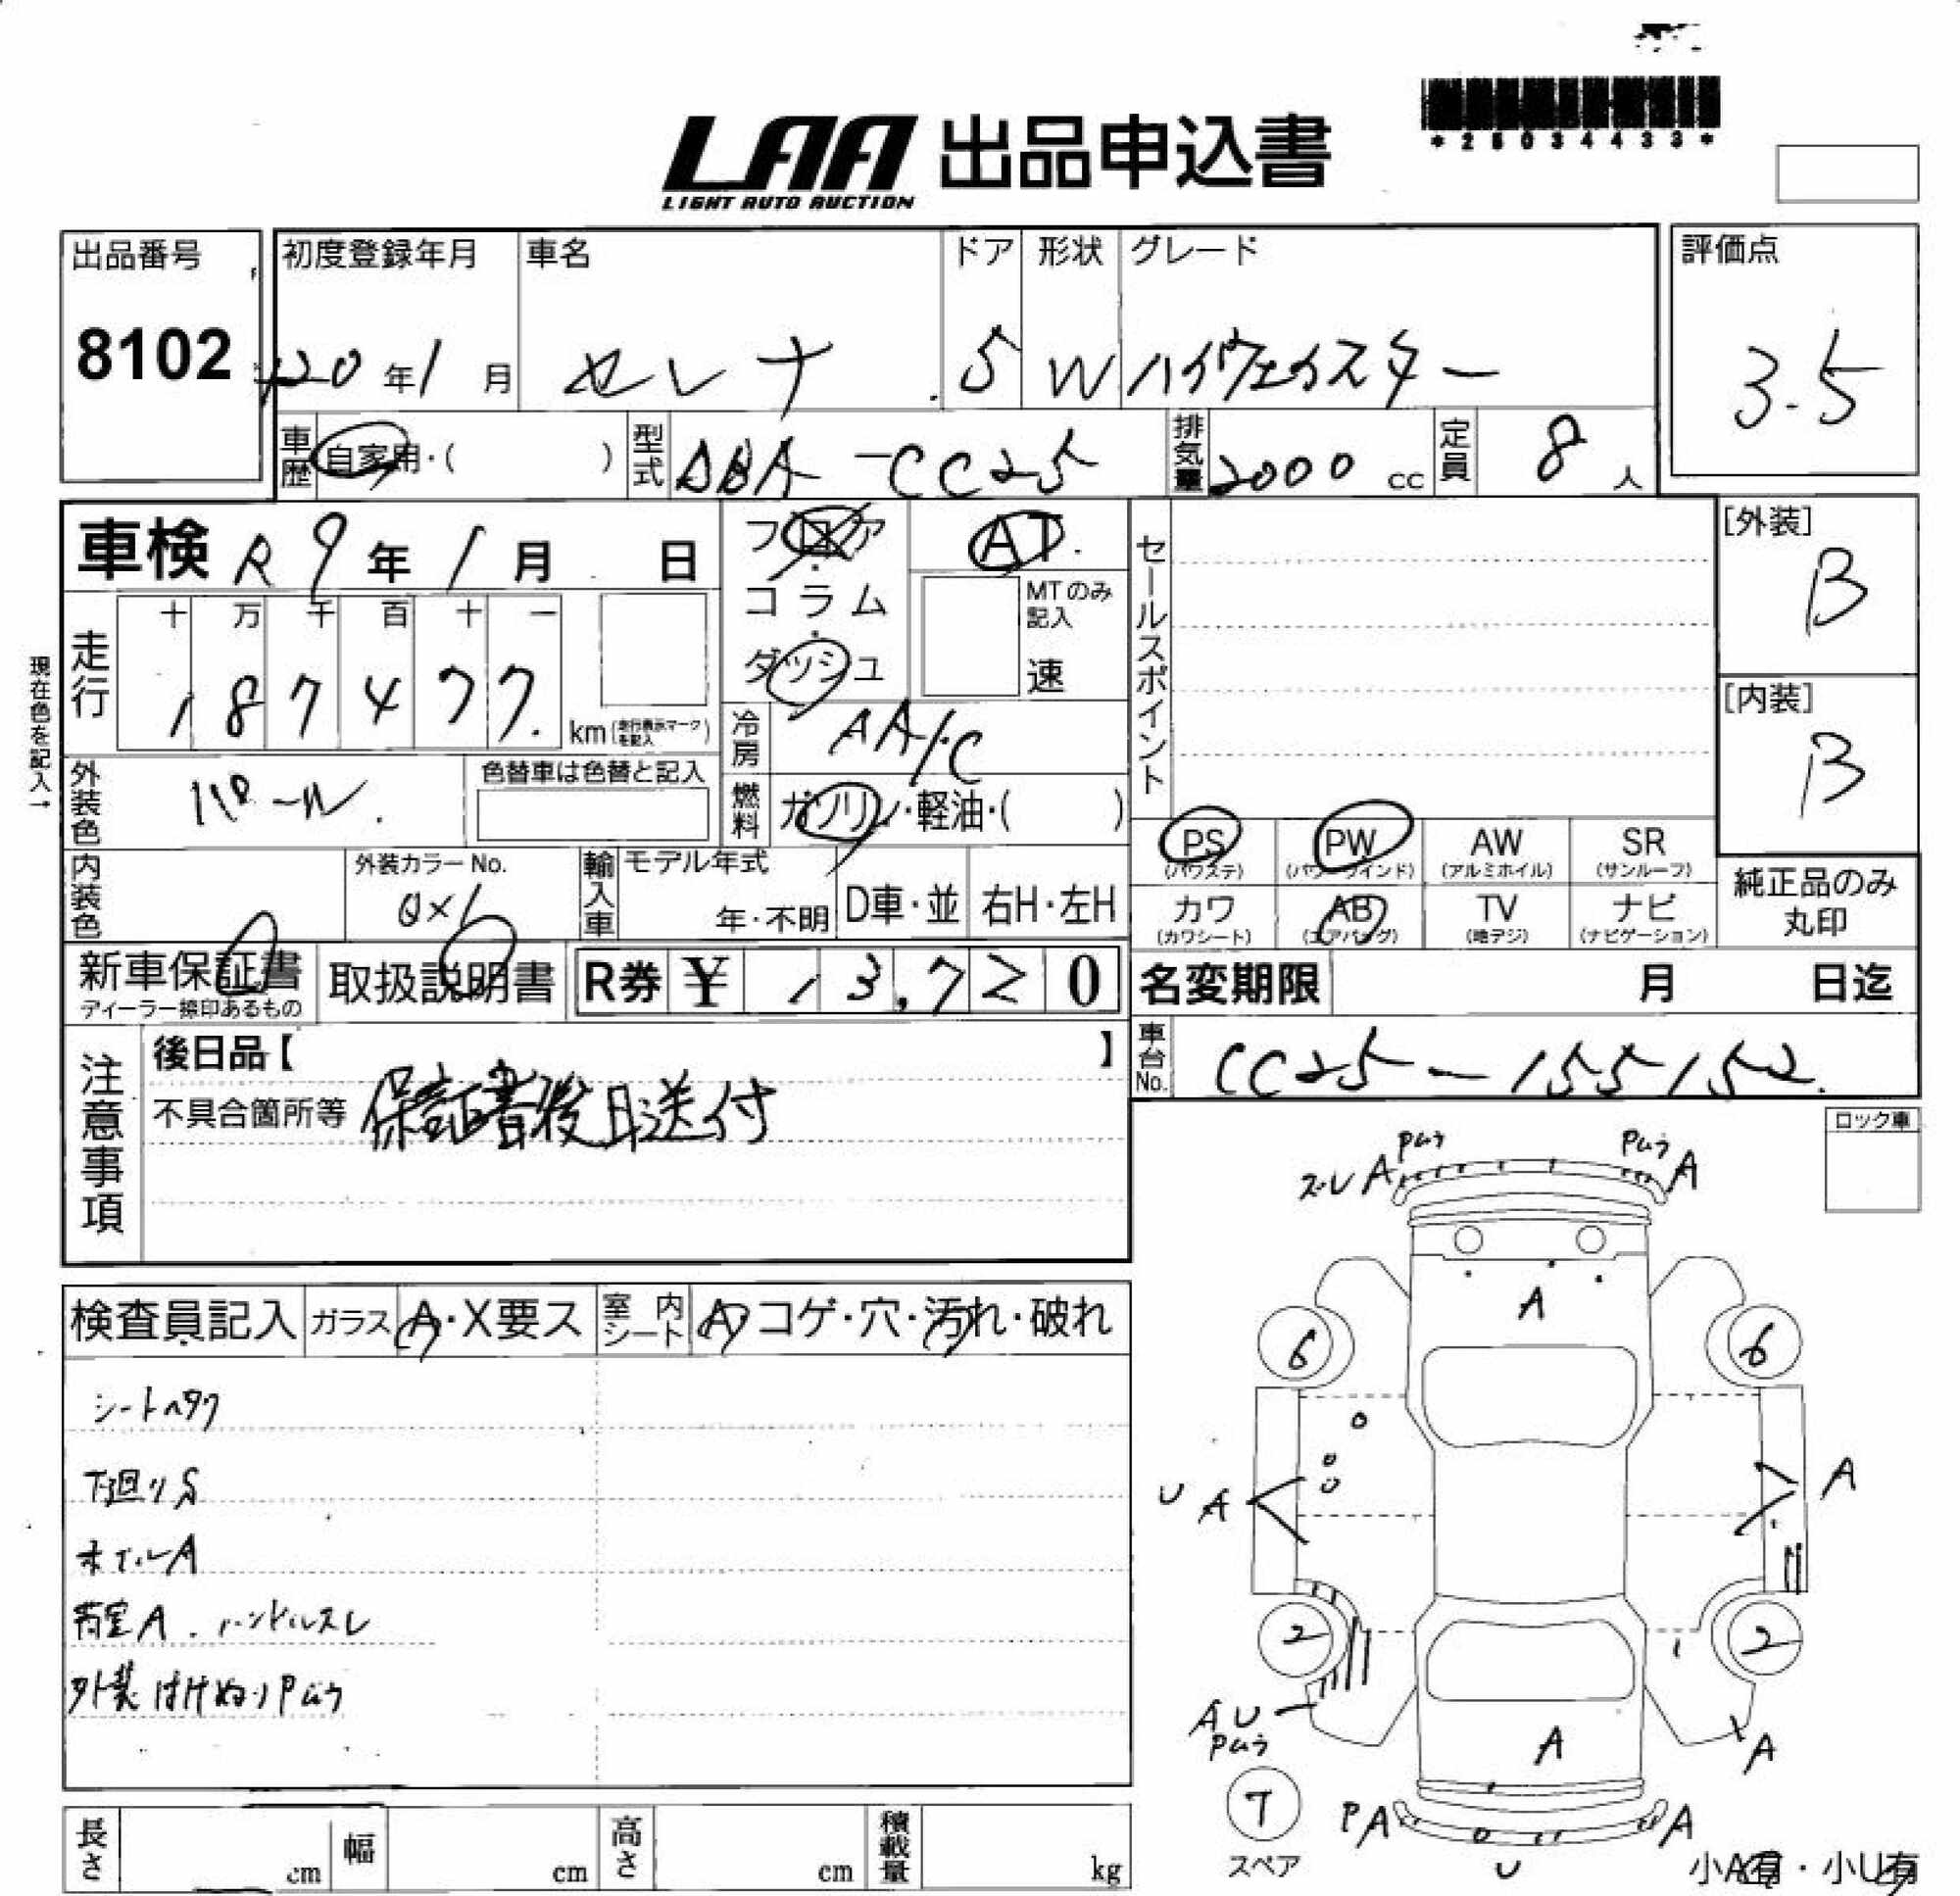 *25034433*
LAA 出品申込書
LIGHT AUTO AUCTION
出品番号 初度登録年月 車名 ドア 形状 グレード 評価点
8102 H20年1月 セレナ 5 W ハイウェイスター 3.5
車歴 自家用・( ) 型式 DBA-CC25 排気量 2000cc 定員 8人
車検 R9年1月 日 フロア AT セールスポイント [外装] B
コラム MTのみ記入
ダッシュ 速
走行 十 万 千 百 十 一
187477 km(走行表示マークを記入) [内装] B
現在色を記入→
冷房 AA/C
外装色 パール 色替車は色替と記入 燃料 ガソリン・軽油・( )
PS PW AW SR
(パワステ) (パワーウインド) (アルミホイル) (サンルーフ)
内装色 外装カラーNo. QX1 輸入車 モデル年式 年・不明 D車・並 右H・左H
カワ AB TV ナビ 純正品のみ丸印
(カワシート) (エアバッグ) (地デジ) (ナビゲーション)
新車保証書 取扱説明書 R券 ¥ 13,720 名変期限 月 日迄
ディーラー捺印あるもの
注意事項 後日品【 】 車台No. CC25-155152
不具合箇所等 保証書後日送付
ロック車
Pムラ Pムラ
スレ A A
検査員記入 ガラス A・X要ス 室内シート A コゲ・穴・汚れ・破れ
A
6 6
シートヘタリ
下廻りS
U A A
ホイールA
荷室A.ハンドルスレ
2 2
外装はけぬりPムラ
A U
Pムラ
A A
T
スペア
P A A
U
小A有・小U有
長さ cm 幅 cm 高さ cm 積載量 kg